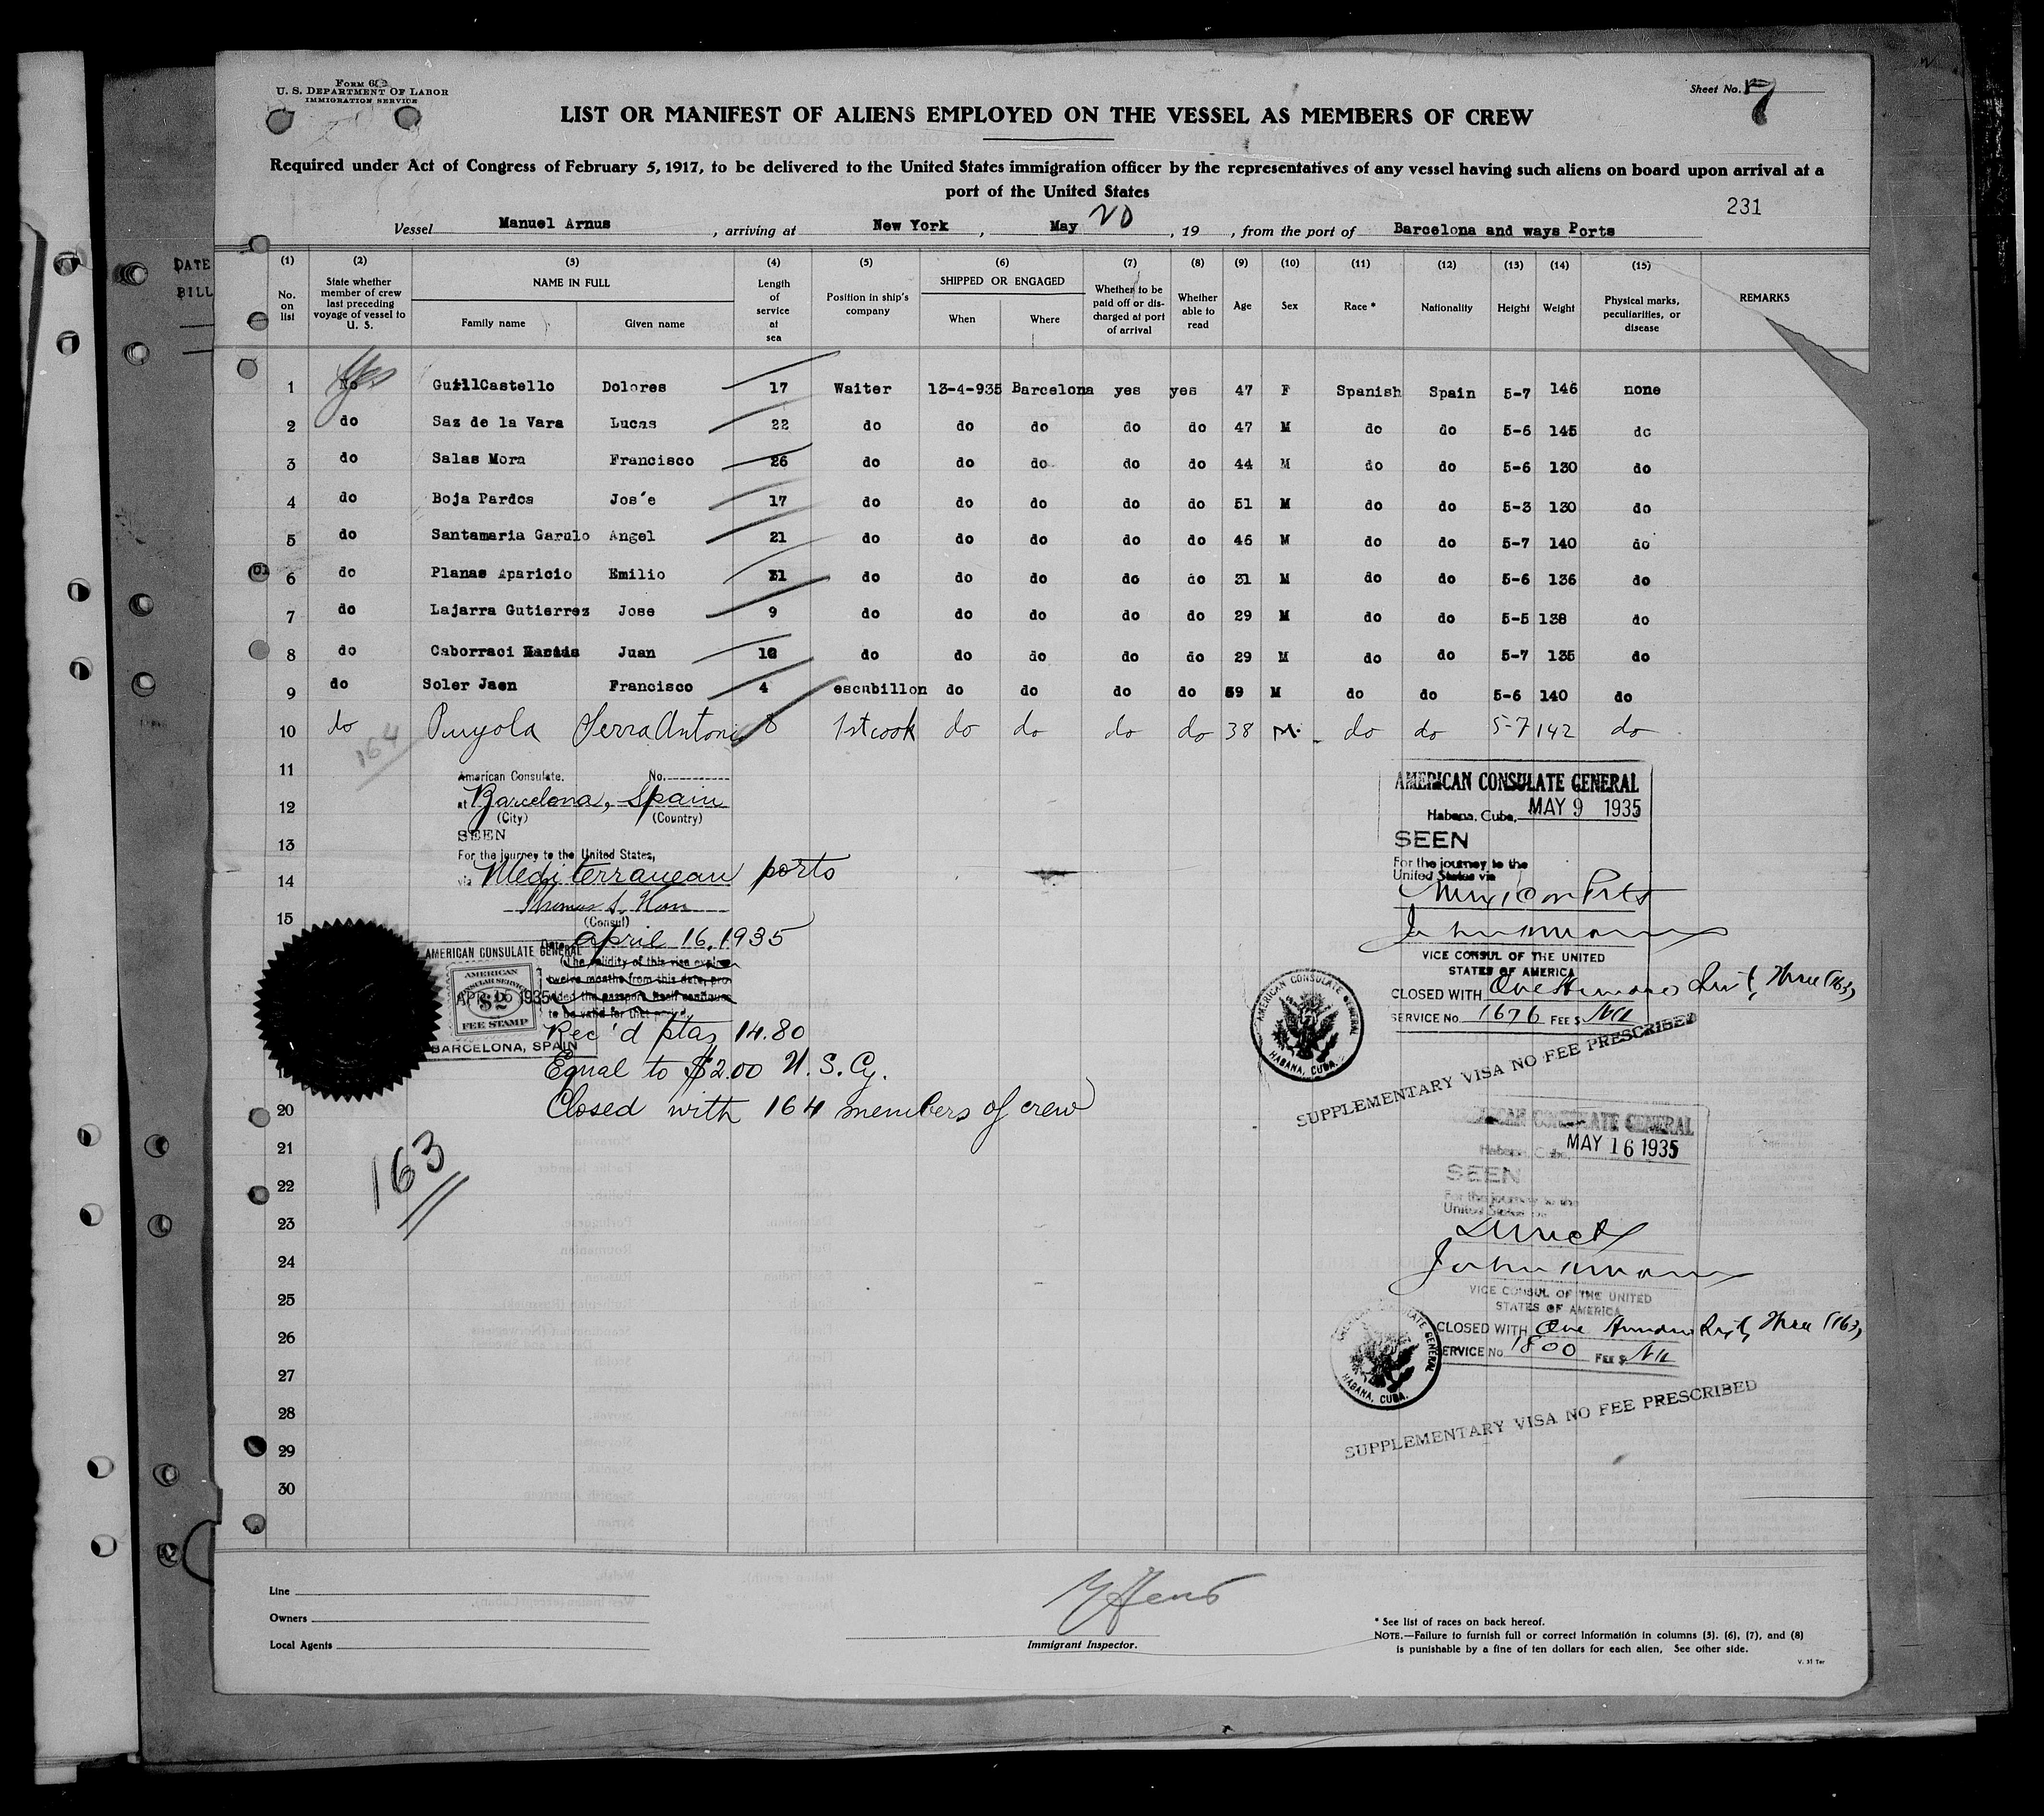 Form 60
U. S. Department Of Labor
IMMIGRATION SERVICE
Sheet No. 7
LIST OR MANIFEST OF ALIENS EMPLOYED ON THE VESSEL AS MEMBERS OF CREW
Required under Act of Congress of February 5, 1917, to be delivered to the United States immigration officer by the representatives of any vessel having such aliens on board upon arrival at a
port of the United States
231
Vessel Manuel Arnus, arriving at New York, May 20, 19 , from the port of Barcelona and ways Ports
DATE
BILL
(1) (2) (3) (4) (5) (6) (7) (8) (9) (10) (11) (12) (13) (14) (15)
No. on list
State whether member of crew last preceding voyage of vessel to U. S.
NAME IN FULL
Family name
Given name
Length of service at sea
Position in ship's company
SHIPPED OR ENGAGED
When
Where
Whether to be paid off or discharged at port of arrival
Whether able to read
Age
Sex
Race *
Nationality
Height
Weight
Physical marks, peculiarities, or disease
REMARKS
1 No Yes GuillCastello Dolores 17 Waiter 13-4-935 Barcelona yes yes 47 F Spanish Spain 5-7 146 none
2 do Saz de la Vara Lucas 22 do do do do do 47 M do do 5-6 145 do
3 do Salas Mora Francisco 26 do do do do do 44 M do do 5-6 130 do
4 do Boja Pardos Jos'e 17 do do do do do 51 M do do 5-3 130 do
5 do Santamaria Garulo Angel 21 do do do do do 46 M do do 5-7 140 do
6 do Planas Aparicio Emilio do do do do do 31 M do do 5-6 136 do
7 do Lajarra Gutierrez Jose 9 do do do do do 29 M do do 5-5 138 do
8 do Caborraci Juan do do do do do 29 M do do 5-7 135 do
9 do Soler Jaen Francisco 4 escubillon do do do do 59 M do do 5-6 140 do
10 do Punyola Serra Antonio 8 1st cook do do do do 38 M. do do 5-7 142 do
164
11
12
13
14
15
20
21
22
23
24
25
26
27
28
29
30
American Consulate. No.
at Barcelona, Spain
(City) (Country)
SEEN
For the journey to the United States,
via Mediterranean ports
Thomas S. Horn
(Consul)
Date April 16, 1935
(The validity of this visa expires
twelve months from this date, pro
vided the passport itself continues
to be valid for that period.
AMERICAN CONSULATE GENERAL
AMERICAN
CONSULAR SERVICE
$2
APR 16 1935
FEE STAMP
BARCELONA, SPAIN
Rec'd ptas 14.80
Equal to $2.00 U. S. Cy.
Closed with 164 members of crew
163
AMERICAN CONSULATE GENERAL
Habana, Cuba, MAY 9 1935
SEEN
For the journey to the
United States via
Mexican Ports
VICE CONSUL OF THE UNITED
STATES OF AMERICA
CLOSED WITH One Hundred Sixty Three (163)
SERVICE No. 1676 FEE $ Nil
AMERICAN CONSULATE GENERAL
HABANA, CUBA.
SUPPLEMENTARY VISA NO FEE PRESCRIBED
AMERICAN CONSULATE GENERAL
Habana, Cuba, MAY 16 1935
SEEN
For the journey to the
United States via
Direct
VICE CONSUL OF THE UNITED
STATES OF AMERICA
CLOSED WITH One Hundred Sixty Three (163)
SERVICE No 1800 FEE $ Nil
AMERICAN CONSULATE GENERAL
HABANA, CUBA.
SUPPLEMENTARY VISA NO FEE PRESCRIBED
Line
Owners
Local Agents
Immigrant Inspector.
* See list of races on back hereof.
NOTE.—Failure to furnish full or correct information in columns (3), (6), (7), and (8)
is punishable by a fine of ten dollars for each alien. See other side.
V. 31 Ter